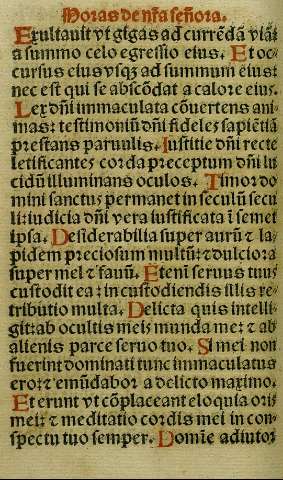 Horas de nr̃a señora.
Exultauit vt gigas ad currẽdã viã:
a summo celo egressio eius. Et oc-
cursus eius vsqꝫ ad summum eius:
nec est qui se abscõdat a calore eiuꝰ.
Lex dñi immaculata cõuertens ani-
mas: testimoniũ dñi fideleꝫ sapiẽtiã
prestans paruulis. Iustitie dñi recte
letificanteꝫ corda preceptum dñi lu
cidũ illuminans oculos. Timor do
mini sanctuꝰ permanet in seculũ secu
li: iudicia dñi vera iustificata ĩ semet
ipsa. Desiderabilia super aurũ ⁊ la-
pidem preciosum multũ: ⁊ dulciora
super mel ⁊ fauũ. Eteni seruus tuuꝰ
custodit ea: in custodiendis illis re-
tributio multa. Delicta quis intelli-
git: ab ocultis meiꝫ munda me: ⁊ ab
alienis parce seruo tuo. Si mei non
fuerint dominati tunc immaculatus
ero: ⁊ emũdabor a delicto maximo.
Et erunt vt cõplaceant eloquia oris
mei: ⁊ meditatio cordis mei in con-
spectu tuo semper. Domĩe adiutor